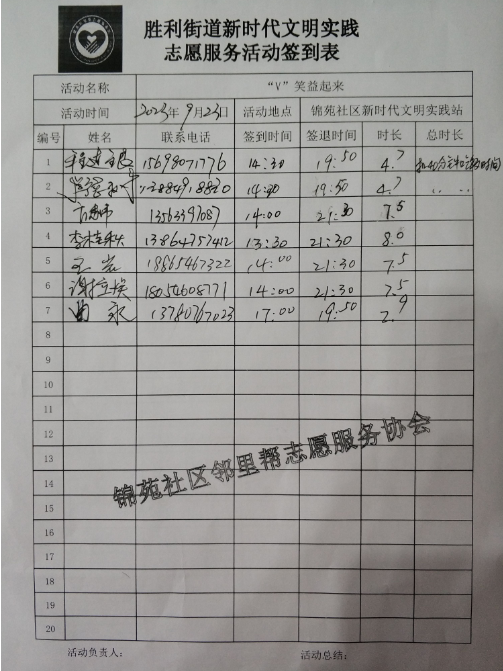 胜利街道新时代文明实践
志愿服务活动签到表
活动名称 “V”笑益起来
活动时间 2023年9月23日 活动地点 锦苑社区新时代文明实践站
编号 姓名 联系电话 签到时间 签退时间 时长 总时长
1 15698071776 14:30 19:50 4.7
2 14:30 19:50 4.7
3 13563397087 14:00 21:30 7.5
4 李桂秋 13864757412 13:30 21:30 8.0
5 王岩 18865467322 14:00 21:30 7.5
6 谢拉娣 18054608771 14:00 21:30 7.5
7 曲永 13780767023 17:00 19:50 2.9
8
9
10
11
12
13
14
15
16
17
18
19
20
锦苑社区邻里帮志愿服务协会
活动负责人: 活动总结: